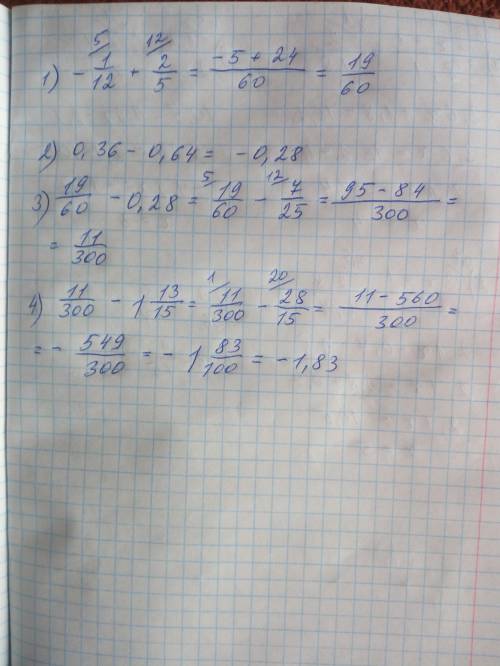 1) - 1/12 + 2/5 = (-5 + 24)/60 = 19/60
2) 0,36 - 0,64 = -0,28
3) 19/60 - 0,28 = 19/60 - 7/25 = (95 - 84)/300 =
= 11/300
4) 11/300 - 1 13/15 = 11/300 - 28/15 = (11 - 560)/300 =
= - 549/300 = - 1 83/100 = -1,83